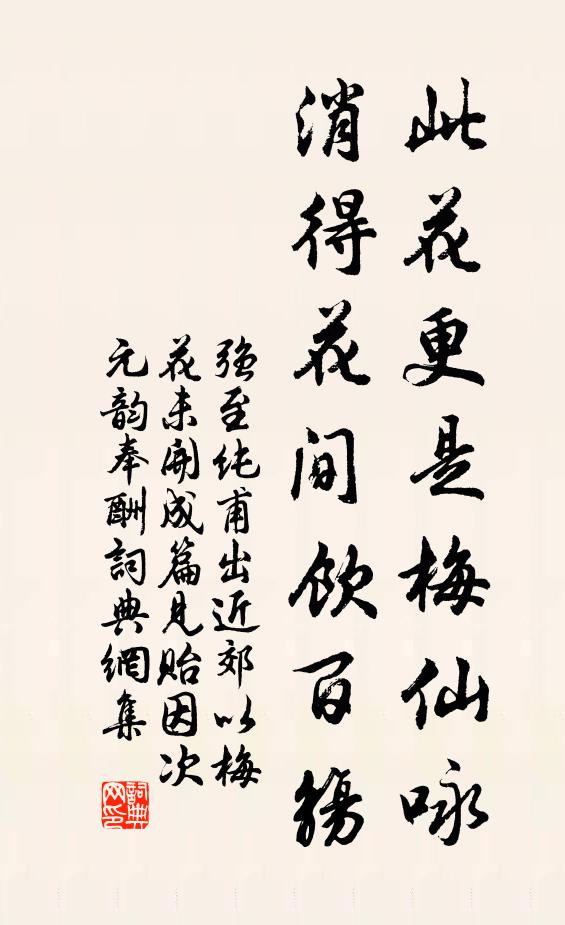 此花更是梅仙咏
消得花间饮百觞
强至纯甫出近郊以梅
花未開成篇見贻因次
元韵奉酬詞典網集
詞典
网印